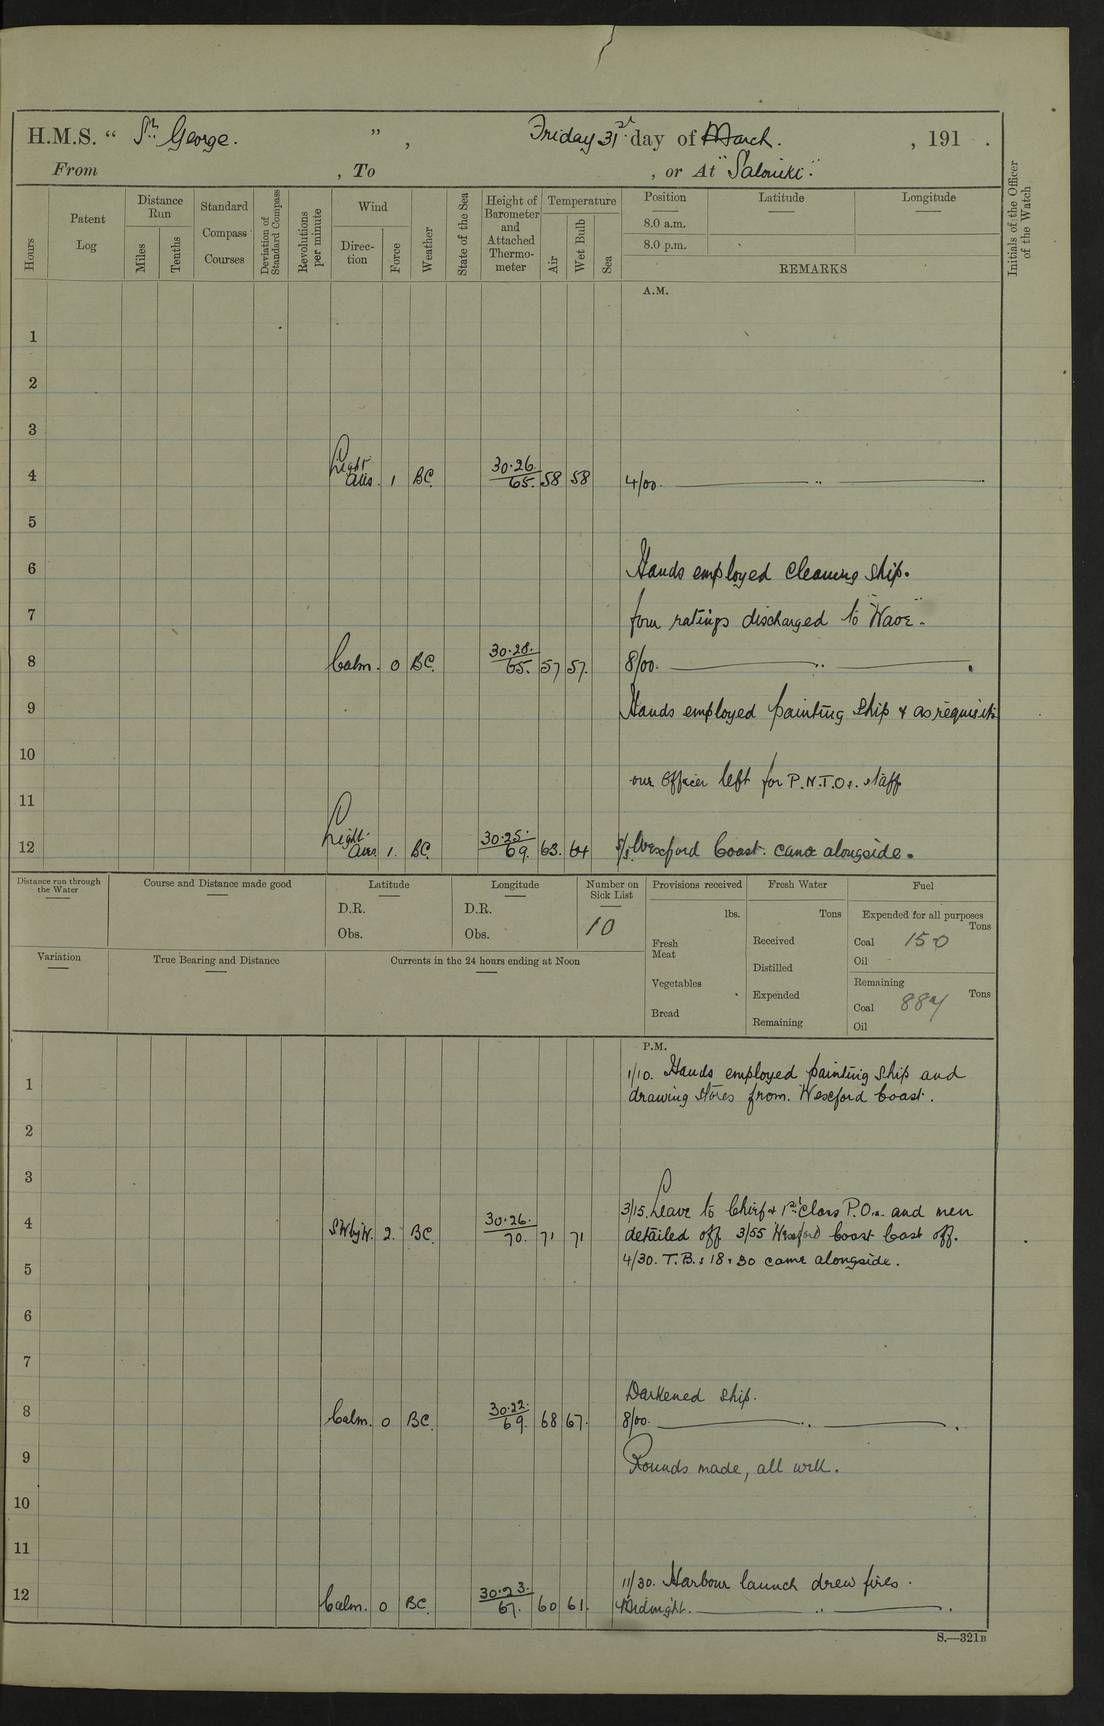 H.M.S. “ St George. ”, Friday 31st day of March. , 191 .
From , To , or At "Salonika".
Hours
Patent Log
Distance Run
Miles
Tenths
Standard Compass Courses
Deviation of Standard Compass
Revolutions per minute
Wind
Direc-tion
Force
Weather
State of the Sea
Height of Barometer and Attached Thermo-meter
Temperature
Air
Wet Bulb
Sea
Position
Latitude
Longitude
8.0 a.m.
8.0 p.m.
REMARKS
Initials of the Officer of the Watch
A.M.
1
2
3
4 Light airs. 1 BC 30.26. 65. 58 58 4/00. — „ —
5
6 Hands employed cleaning ship.
7 four ratings discharged to "Wave".
8 Calm. 0 BC. 30.28. 65. 57 57. 8/00. — „ — .
9 Hands employed painting ship & as requisite
10
our Officer left for P.N.T.O's. staff
11
12 Light airs 1. BC. 30.25. 69. 63. 64 Wexford Coast. came alongside.
Distance run through the Water
Course and Distance made good
Latitude
D.R.
Obs.
Longitude
D.R.
Obs.
Number on Sick List
10
Provisions received
lbs.
Fresh Meat
Vegetables
Bread
Fresh Water
Tons
Received
Distilled
Expended
Remaining
Fuel
Expended for all purposes
Tons
Coal 150
Oil
Remaining
Tons
Coal 887
Oil
Variation
True Bearing and Distance
Currents in the 24 hours ending at Noon
P.M.
1/10. Hands employed painting ship and
1 drawing stores from. Wexford Coast.
2
3
3/15. Leave to Chief & 1st Class P.O.s. and men
4 SWbyW. 2. BC. 30.26. 70. 71 71 detailed off 3/55 Wexford Coast cast off.
4/30. T.B.s 18 & 30 came alongside.
5
6
7
Darkened ship.
8 Calm. 0 BC. 30.22. 69. 68 67. 8/00. — „ — .
9 Rounds made, all well.
10
11
11/30. Harbour launch drew fires.
12 Calm. 0 BC. 30.23. 67. 60 61. Midnight. — „ — .
S.—321B